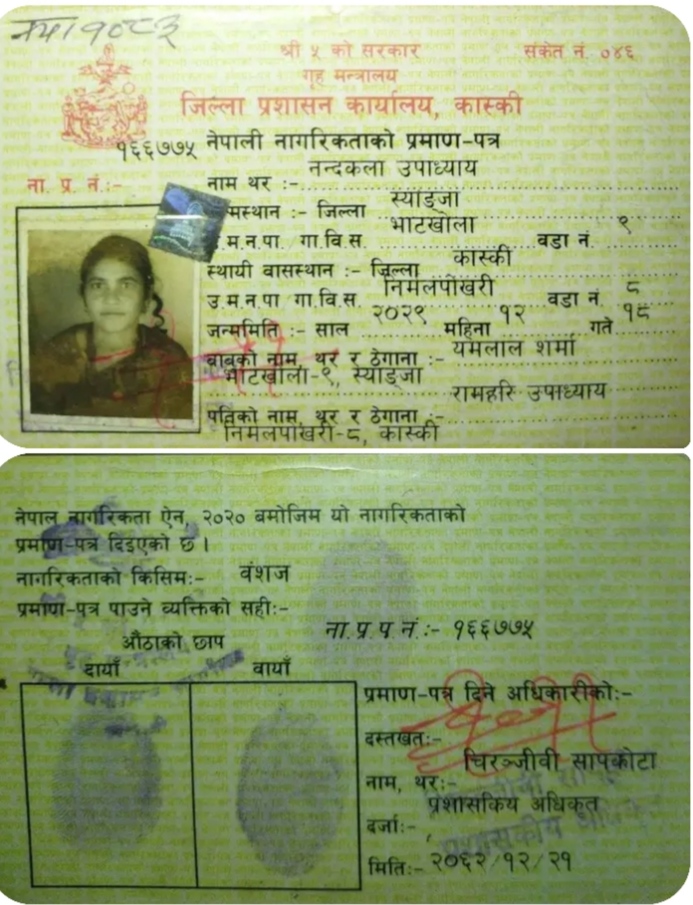 न्या १०८३
श्री ५ को सरकार
संकेत नं. ०४६
गृह मन्त्रालय
जिल्ला प्रशासन कार्यालय, कास्की
१६६७७५ नेपाली नागरिकताको प्रमाण-पत्र
ना. प्र. नं.:-
नाम थर :- नन्दकला उपाध्याय
मस्थान :- जिल्ला स्याङ्जा
.म.न.पा. गा.वि.स. भाटखोला वडा नं. ९
स्थायी वासस्थान :- जिल्ला कास्की
उ.म.न.पा गा.वि.स. निर्मलपोखरी वडा नं. ८
जन्ममिति :- साल २०२९ महिना १२ गते १८
बाबुको नाम, थर र ठेगाना :- यमलाल शर्मा
भाटखोला-९, स्याङ्जा
पतिको नाम, थर र ठेगाना :- रामहरि उपाध्याय
निर्मलपोखरी-८, कास्की
नेपाल नागरिकता ऐन, २०२० बमोजिम यो नागरिकताको
प्रमाण-पत्र दिइएको छ ।
नागरिकताको किसिम:- वंशज
प्रमाण-पत्र पाउने व्यक्तिको सही:-
ना.प्र.प.नं.:- १६६७७५
औंठाको छाप
दायाँ बायाँ
प्रमाण-पत्र दिने अधिकारीको:-
दस्तखत:-
नाम, थर:- चिरञ्जीवी सापकोटा
दर्जा:- प्रशासकिय अधिकृत
मिति:- २०६२/१२/२१